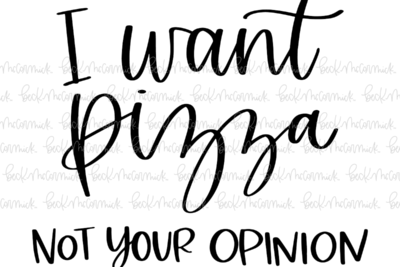 I want
pizza
NOT YOUR OPINION